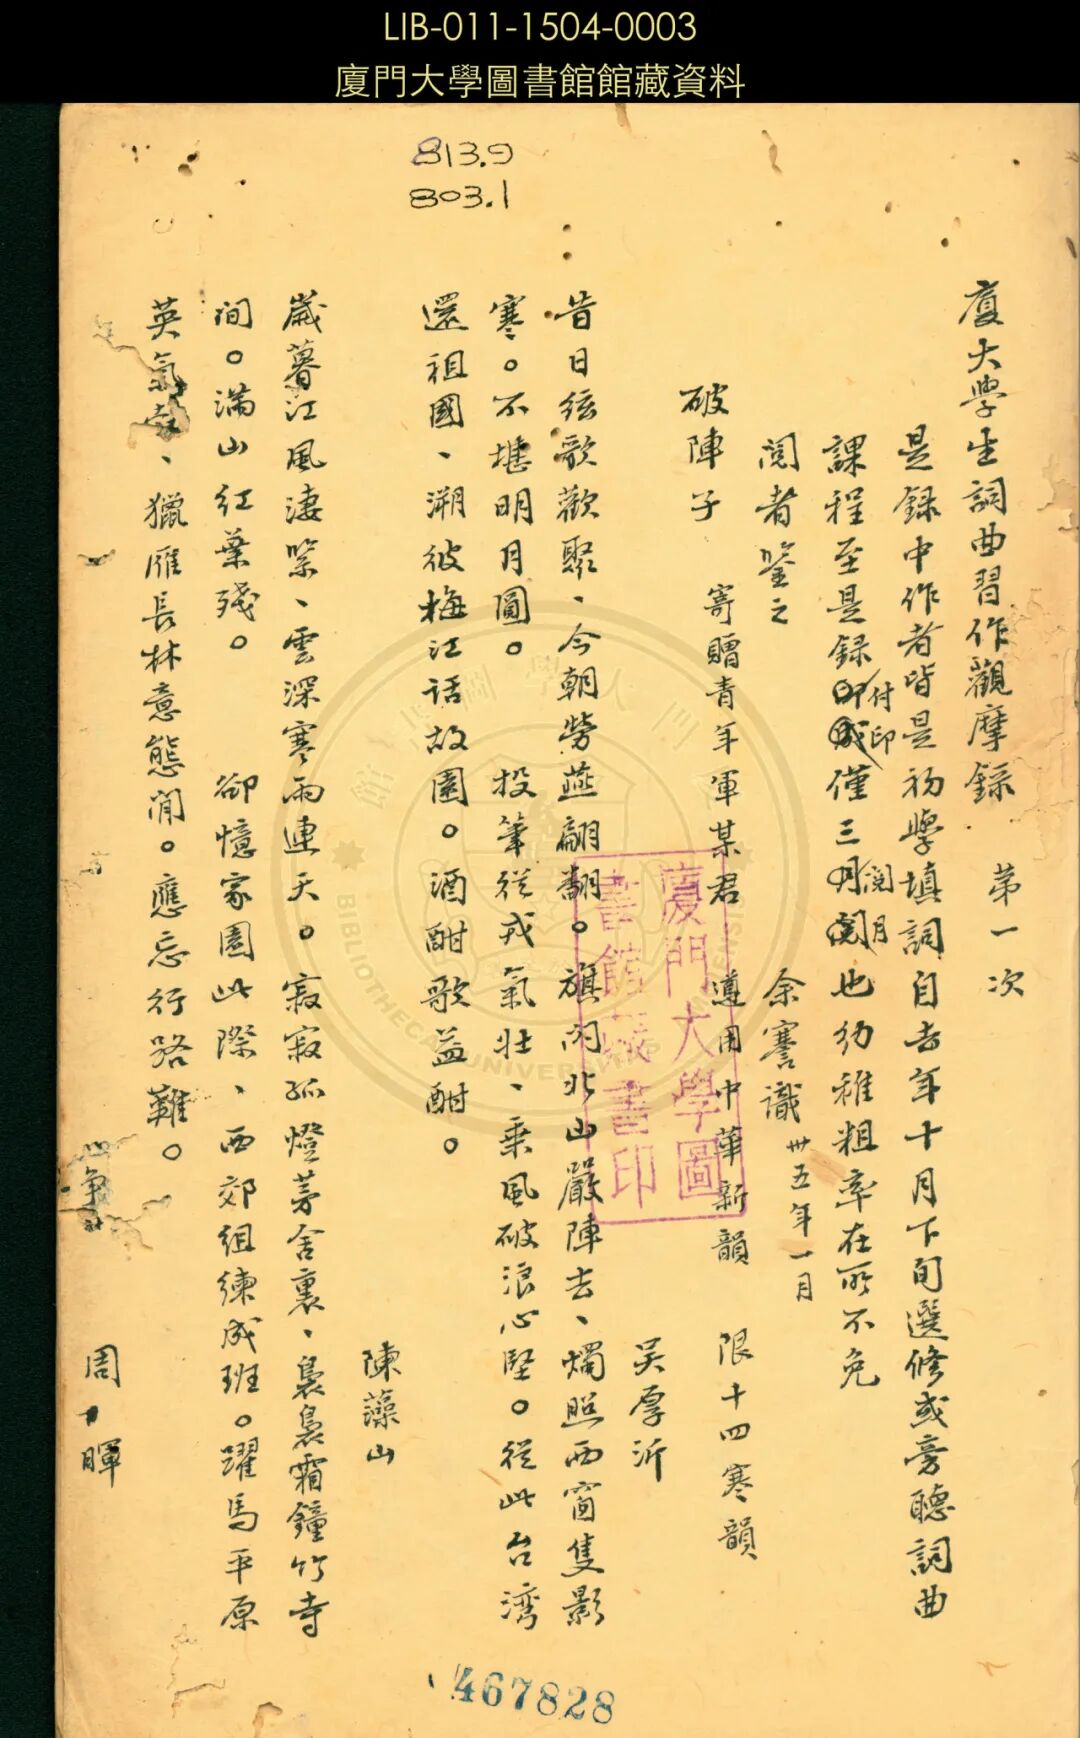 LIB-011-1504-0003
廈門大學圖書館館藏資料
813.9
803.1
廈大學生詞曲習作觀摩錄 第一次
是録中作者皆是初學填詞自去年十月下旬選修或旁聽詞曲
課程至是録付印僅三閱月也幼稚粗率在所不免
閱者鉴之 余謇識 卅五年一月
破陣子 寄贈青年軍某君 遵用中華新韻 限十四寒韻
吴厚沂
昔日弦歌歡聚、今朝勞燕翩翻。旗閃北山嚴陣去、燭照西窗隻影
寒。不堪明月圓。 投筆從戎氣壯、乘風破浪心堅。從此台湾
還祖國、溯彼梅江話故園。酒酣歌益酣。
陳藻山
歲暮江風淒緊、雲深寒雨連天。寂寂孤燈茅舍裏、裊裊霜鐘竹寺
间。满山红葉殘。 卻憶家園此際、西郊组練成班。躍馬平原
英氣、獵雁長林意態闲。應忘行路難。
周 暉
廈門大學圖
書館藏書印
467828
BIBLIOTHECA UNIVERSITATIS